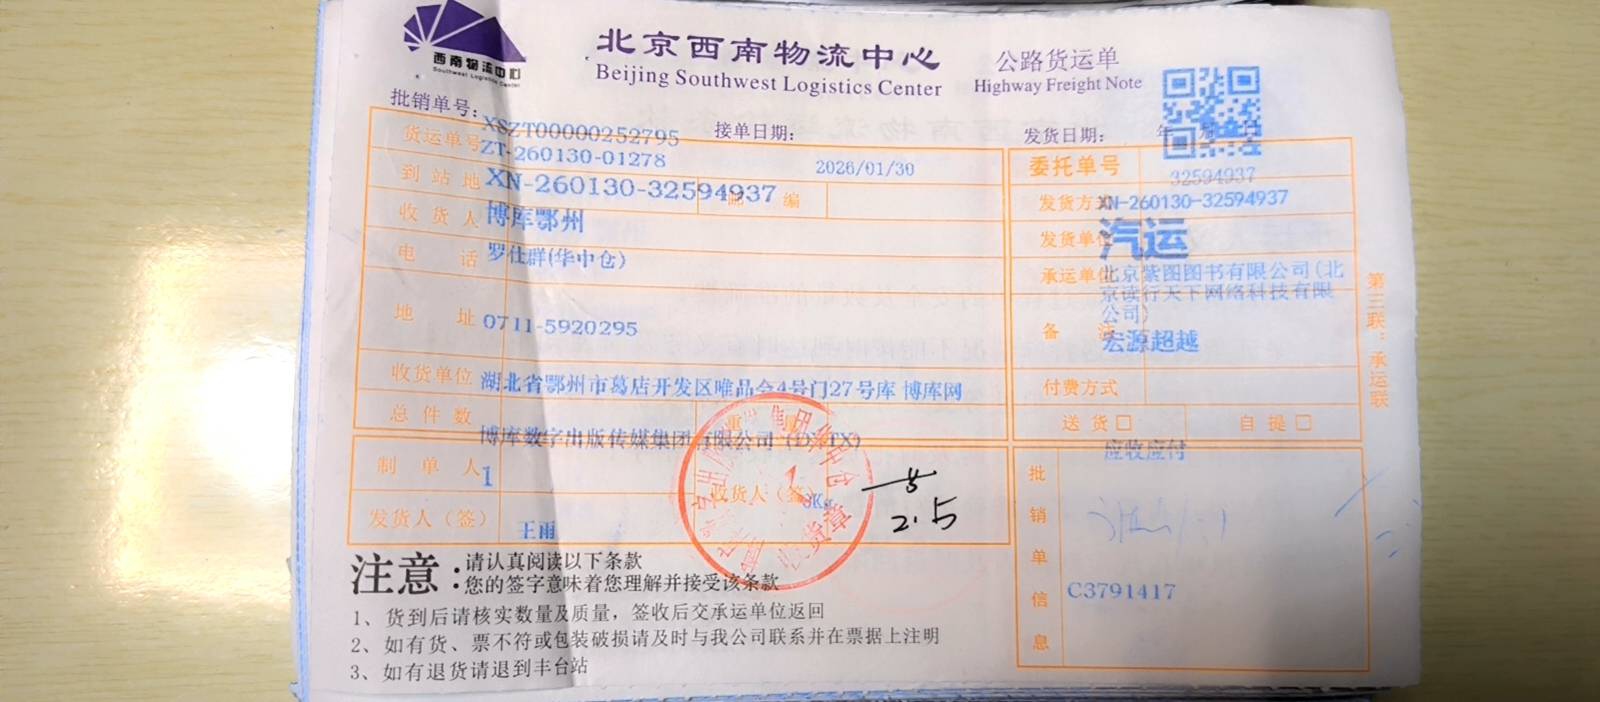 西南物流中心
Southwest Logistics Center
北京西南物流中心
Beijing Southwest Logistics Center
公路货运单
Highway Freight Note
批销单号:
XSZT00000252795
接单日期:
发货日期:
年 月 日
货运单号
ZT-260130-01278
2026/01/30
委托单号
32594937
到站地
XN-260130-32594937
邮 编
发货方式
XN-260130-32594937
收货人
博库鄂州
发货单位
汽运
电 话
罗仕群(华中仓)
承运单位
北京紫图图书有限公司(北
京读行天下网络科技有限
公司)
地 址
0711-5920295
备 注
宏源超越
收货单位
湖北省鄂州市葛店开发区唯品会4号门27号库 博库网
付费方式
总件数
重 量
送货□
自提□
博库数字出版传媒集团有限公司
应收应付
制单人
1
收货人(签)
2.5
发货人(签)
王雨
批销单信息
C3791417
第三联:承运联
注意:
请认真阅读以下条款
您的签字意味着您理解并接受该条款
1、货到后请核实数量及质量,签收后交承运单位返回
2、如有货、票不符或包装破损请及时与我公司联系并在票据上注明
3、如有退货请退到丰台站